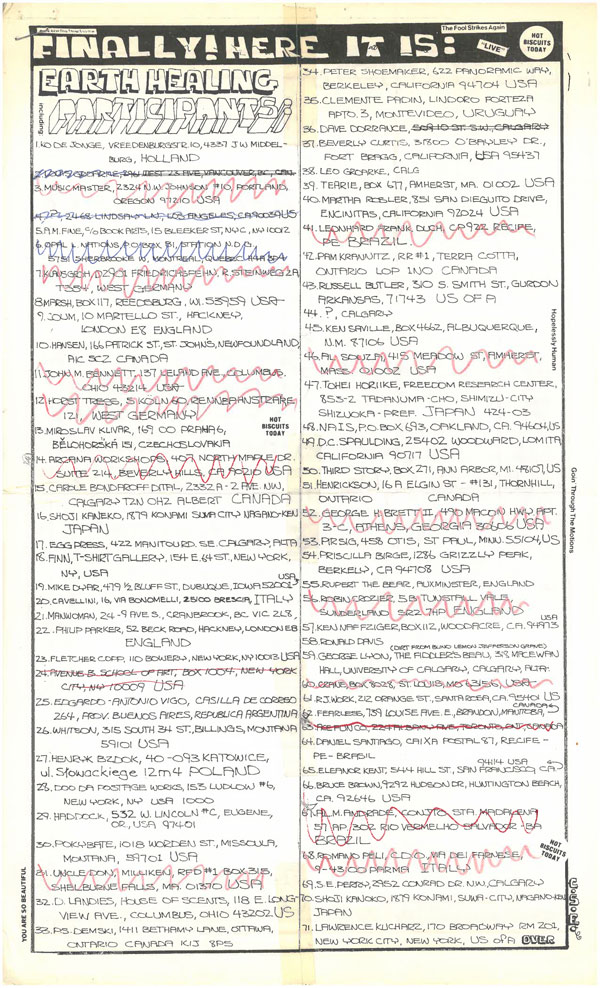 The Fool Strikes Again
FINALLY! HERE IT IS:
"LIVE"
HOT
BISCUITS
TODAY
EARTH HEALING
PARTICIPANTS:
including
1. KO DE JONGE, VREEDENBURGSTR. 10, 4337 J W MIDDEL-
BURG, HOLLAND
3. MUSICMASTER, 2324 N.W. JOHNSON #10, PORTLAND,
OREGON 97210 USA
2468 LINDSAY LN., LOS ANGELES, CA 90039 US
5. A.M. FINE, C/O BOOK ARTS, 15 BLEEKER ST., NYC, NY 10012
6. OPAL L. NATIONS, P.O. BOX STATION N.D.G.
5751 SHERBROOKE W. MONTREAL, QUEBEC H4A
7. KLAUSSOH, D-2901 FRIEDRICHSFEHN, R. STEINWEG 2A
WEST GERMANY
8. MARSH, BOX 117, REEDSBURG, WI. 53959 USA
9. 10 MARTELLO ST., HACKNEY,
LONDON E8 ENGLAND
10. HANSEN, 166 PATRICK ST., ST. JOHN'S, NEWFOUNDLAND,
A1C 5C2 CANADA
11. JOHN M. BENNETT, 137 LELAND AVE., COLUMBUS,
OHIO 43214 USA
12. HORST TRESS, 5 KÖLN 60, RENNBAHNSTRAßE
121, WEST GERMANY
13. MIROSLAV KLIVAR, 169 00 PRAHA 6,
BĚLOHORSKÁ 151, CZECHOSLOVAKIA
HOT
BISCUITS
TODAY
14. ARZANA WORKSHOPS, 407 NORTH MAPLE DR.
SUITE 214, BEVERLY HILLS, CA 90210 USA
15. CAROLE BONDAROFF DITAL, 2332 A - 2 AVE. N.W.,
CALGARY T2N 0H2 ALBERT CANADA
16. SHOJI KANEKO, 1879 KONAMI SUMA CITY NAGANO-KEN
JAPAN
17. EGG PRESS, 422 MANITOU RD. S.E. CALGARY, ALTA
18. FINN, T-SHIRT GALLERY, 154 E. 64 ST., NEW YORK,
NY, USA
19. MIKE DYAR, 479 ½ BLUFF ST., DUBUQUE, IOWA 52001 USA
20. CAVELLINI, 16, VIA BONOMELLI, 25100 BRESCIA, ITALY
21. MANWOMAN, 24-9 AVE S., CRANBROOK, BC V1C 2L8
22. PHILIP PARKER, 52 BECK ROAD, HACKNEY, LONDON E8
ENGLAND
23. FLETCHER COPP, 110 BOWERY, NEW YORK, NY 10013 USA
24. AVENUE B. SCHOOL OF ART, BOX 1004, NEW YORK
CITY, NY 10009 USA
25. EDGARDO-ANTONIO VIGO, CASILLA DE CORREO
264, PROV. BUENOS AIRES, REPUBLICA ARGENTINA
26. WHITSON, 315 SOUTH 34 ST., BILLINGS, MONTANA
59101 USA
27. HENRYK BZDOK, 40-093 KATOWICE,
ul. Słowackiege 12m4 POLAND
28. DOO DA POSTAGE WORKS, 153 LUDLOW #6,
NEW YORK, NY USA 1000
29. HADDOCK, 532 W. LINCOLN #C, EUGENE,
OR, USA 97401
30. POKYBATE, 1018 WORDEN ST., MISSOULA,
MONTANA, 59701 USA
31. UNCLE DON, MILLIKEN, RFD #1, BOX 315,
SHELBURNE FALLS, MA. 01370 USA
32. D. LANDIES, HOUSE OF SCENTS, 118 E. LONG-
VIEW AVE., COLUMBUS, OHIO 43202 US
33. P.S. DEMSKI, 1411 BETHAMY LANE, OTTAWA,
ONTARIO CANADA K1J 8P5
YOU ARE SO BEAUTIFUL
34. PETER SHOEMAKER, 622 PANORAMIC WAY,
BERKELEY, CALIFORNIA 94704 USA
35. CLEMENTE PADIN, LINDORO FORTEZA
APTO. 3, MONTEVIDEO, URUGUAY
36. DAVE DORRANCE, S.W., CALGARY
37. BEVERLY CURTIS, 31800 O'BAYLEY DR.,
FORT BRAGG, CALIFORNIA, USA 95437
38. LEO GROARKE, CALG
39. TEARIE, BOX 677, AMHERST, MA. 01002 USA
40. MARTHA ROSLER, 851 SAN DIEGUITO DRIVE,
ENCINITAS, CALIFORNIA 92024 USA
41. LEONHARD FRANK DUCH, CP 922 RECIFE,
PE BRAZIL
42. PAM KRAWVITZ, RR #1, TERRA COTTA,
ONTARIO L0P 1N0 CANADA
43. RUSSELL BUTLER, 310 S. SMITH ST., GURDON
ARKANSAS, 71743 US OF A
44. ?, CALGARY
Hopelessly Human
45. KEN SAVILLE, BOX 4662, ALBUQUERQUE,
N.M. 87106 USA
46. AL SONZA, 415 MEADOW ST., AMHERST,
MASS 01002 USA
47. TOHEI HORIIKE, FREEDOM RESEARCH CENTER,
853-2 TADANUMA-CHO, SHIMIZU-CITY
SHIZUOKA-PREF. JAPAN 424-03
48. NAIS, P.O. BOX 693, OAKLAND, CA. 94604, US
49. D.C. SPAULDING, 25402 WOODWARD, LOMITA,
CALIFORNIA 90717 USA
50. THIRD STORY, BOX 271, ANN ARBOR, MI. 48107, US
51. HENRICKSON, 16 A ELGIN ST - #131, THORNHILL,
ONTARIO CANADA
Goin' Through The Motions
52. GEORGE H. BRETT II, APT
3-C ATHENS, GEORGIA 30606 USA
53. PIRSIG, 458 OTIS, ST PAUL, MINN. 55104, US
54. PRISCILLA BIRGE, 1286 GRIZZLY PEAK,
BERKELY, CA 94708 USA
55. RUPERT THE BEAR, AUXMINSTER, ENGLAND
56. ROBIN CROZIER, 5B TUNSTALL VALE
SUNDERLAND SR2 7HP ENGLAND
57. KEN NAFFZIGER, BOX 112, WOODACRE, CA. 94973 USA
58. RONALD DAVIS
(DIRT FROM BLIND LEMON JEFFERSON GRAVE)
59. GEORGE LYON, THE FIDDLER'S BEAU, 318 MACEWAN
HALL, UNIVERSITY OF CALGARY, CALGARY, ALTA.
60. CRANE, BOX 8028, ST. LOUIS, MO 63156, USA
61. R.J. WORK, 212 ORANGE ST., SANTA ROSA, CA. 95401 US
62. FEARLESS, 739 LOUISE AVE. E., BRANDON, MANITOBA, CANADA
63. TORONTO, ONT.
64. DANIEL SANTIAGO, CAIXA POSTAL 87, RECIFE -
PE - BRASIL
65. ELEANOR KENT, 544 HILL ST., SAN FRANCISCO CA. 94114 USA
66. BRUCE BROWN, 9292 HUDSON DR., HUNTINGTON BEACH,
CA. 92646 USA
67. A.L.M. ANDRADE, CONJTO. STA. MADALENA
59 AP. 302 RIO VERMELHO SALVADOR - BA
BRAZIL
68. ROMANO PELI CDO, VIA DEI FARNESE,
9-43100 PARMA ITALY
HOT
BISCUITS
TODAY
69. S.E. PERRY, 2952 CONRAD DR. N.W., CALGARY
70. SHOJI KANOKO, 1879 KONAMI, SUMA-CITY, NAGANO-KEN
JAPAN
71. LAWRENCE KUCHARZ, 170 BROADWAY RM 201,
NEW YORK CITY, NEW YORK, US OF A OVER